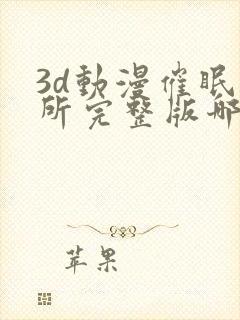 3d動漫催眠
所完整版哪
苹果